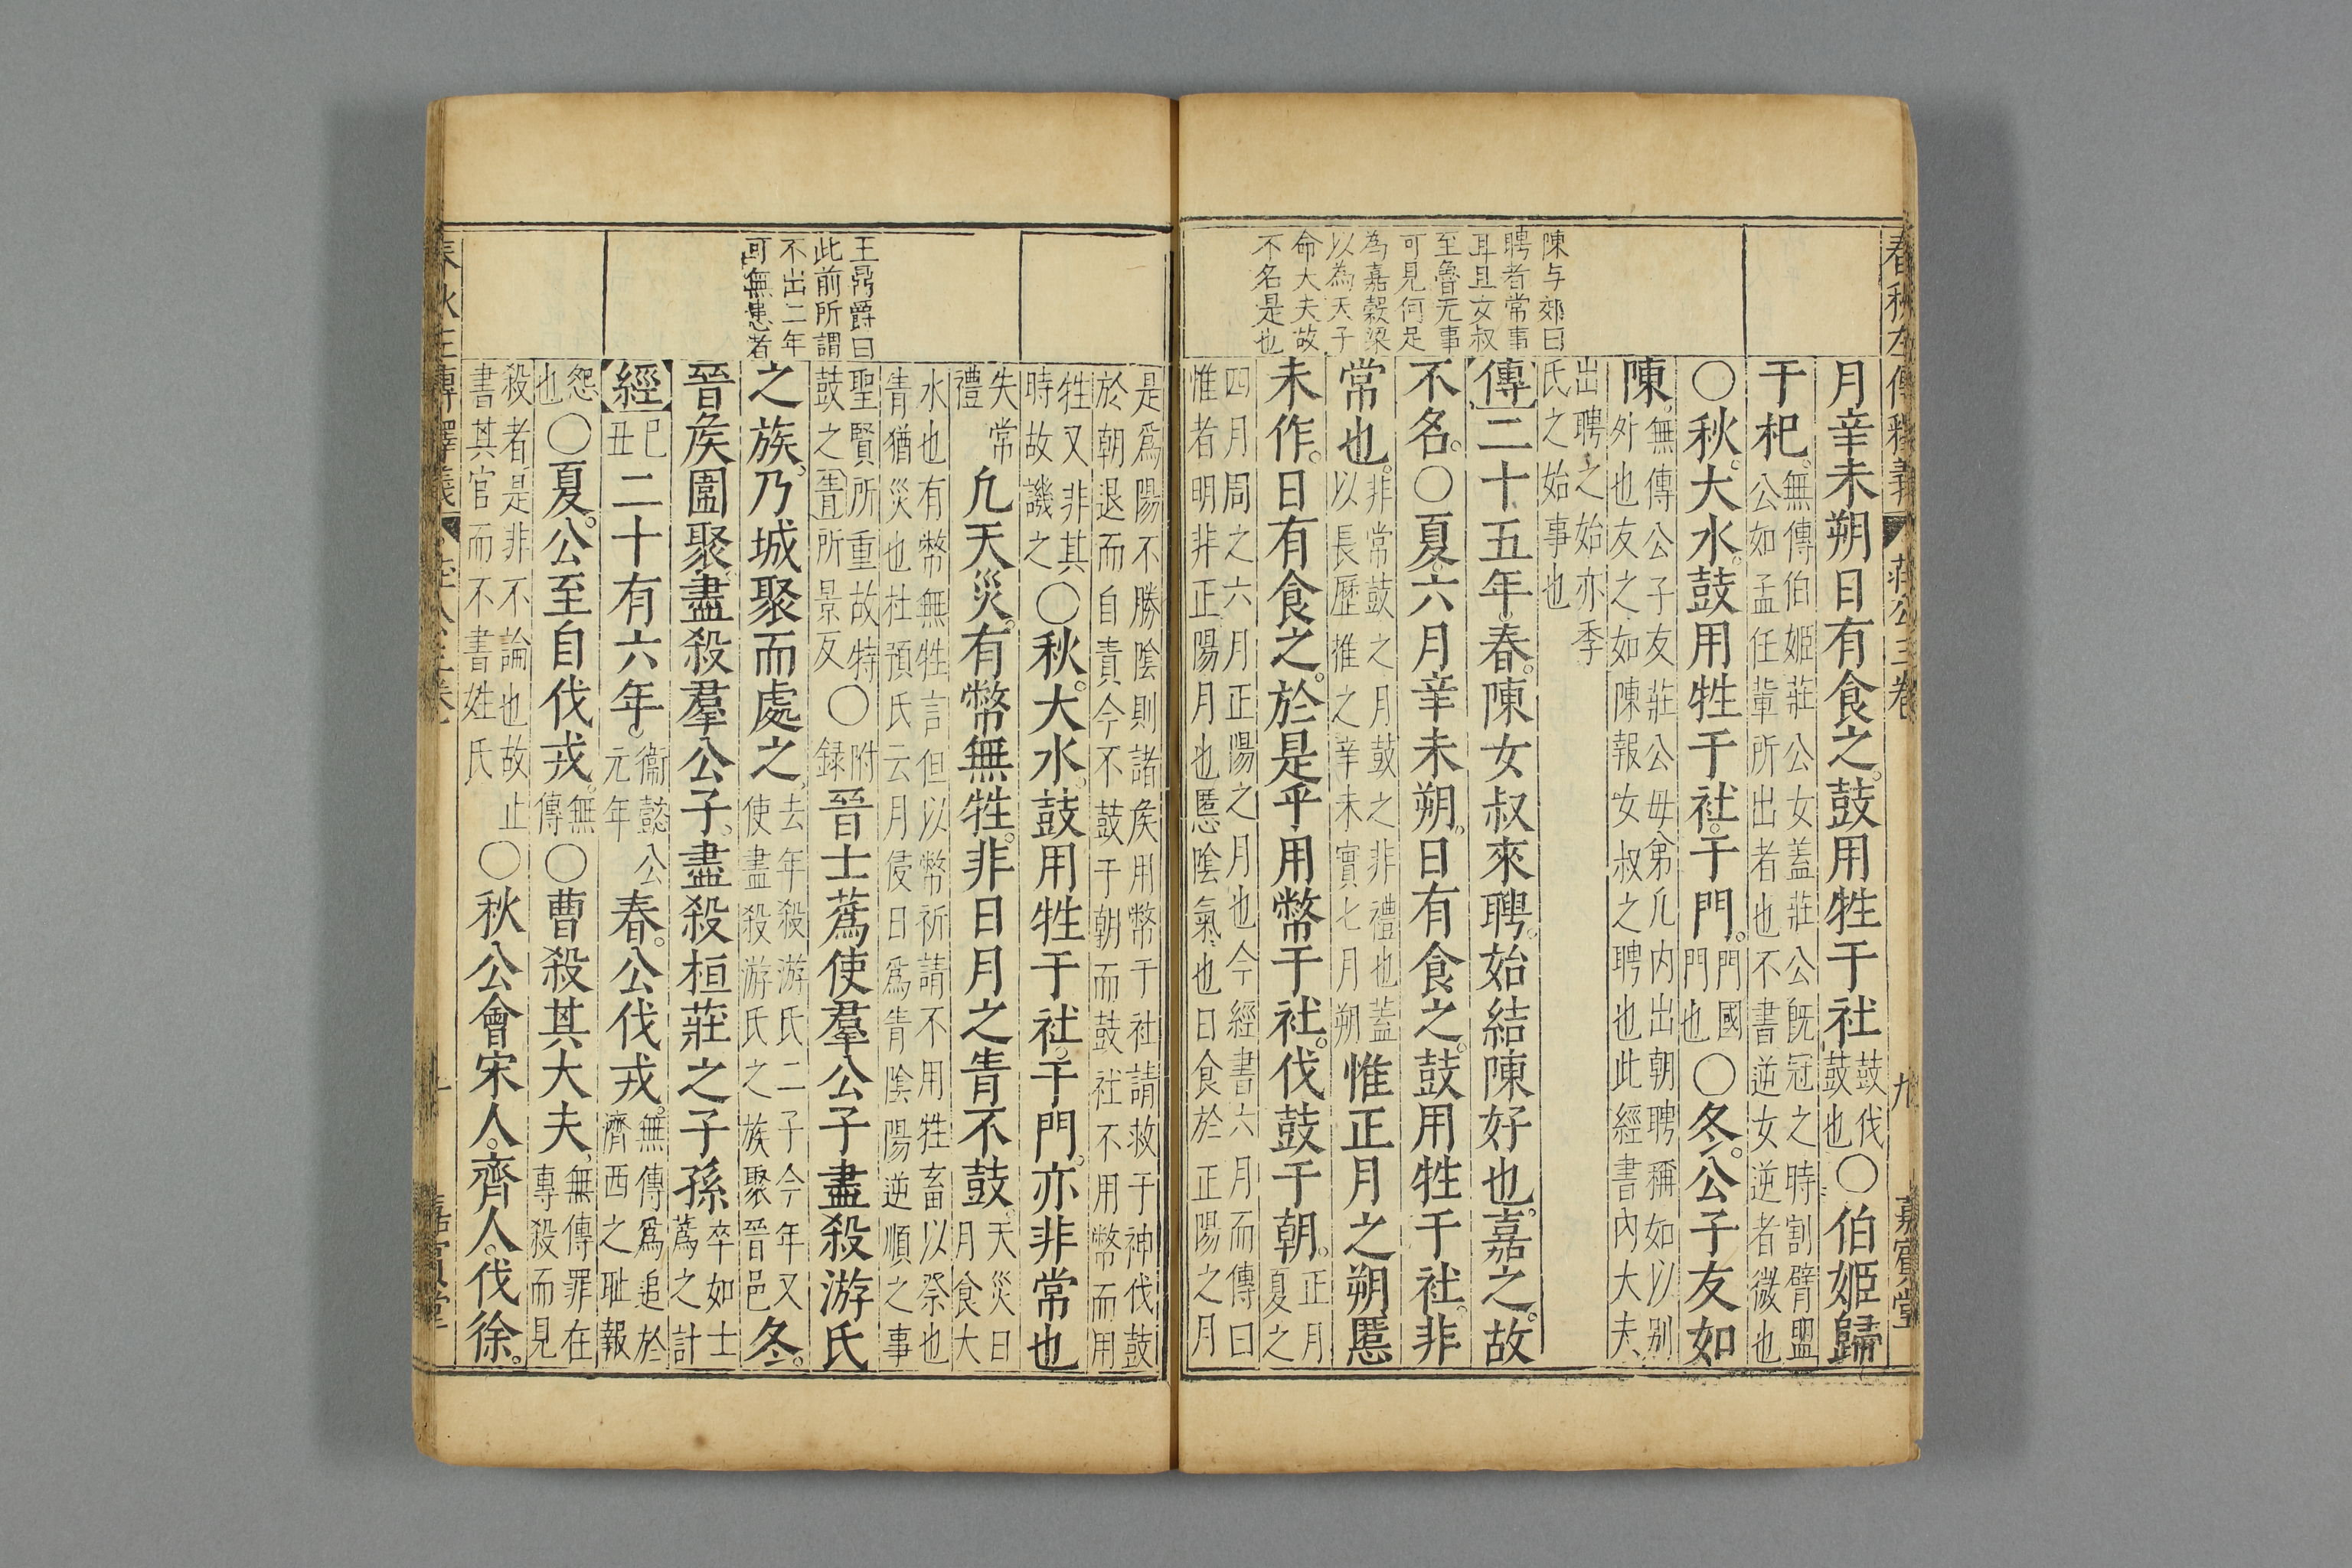 春秋左傳釋義 莊公三卷 九 嘉賓堂
陳与郊曰
聘者常事
耳且女叔
至魯无事
可見何足
為嘉榖梁
以為天子
命大夫故
不名是也
月辛未朔日有食之鼓用牲于社鼓伐鼓也○伯姬歸
于杞無傳伯姬莊公女蓋莊公既冠之時割臂盟公如孟任軰所出者也不書逆女逆者微也
○秋大水鼓用牲于社于門門國門也○冬公子友如
陳無傳公子友莊公毋弟凢内出朝聘稱如以別外也友之如陳報女叔之聘也此經書內大夫
出聘之始亦季氏之始事也
傳二十五年春陳女叔來聘始結陳好也嘉之故
不名○夏六月辛未朔日有食之鼓用牲于社非
常也非常鼓之月鼓之非禮也蓋以長歷推之辛未實七月朔惟正月之朔慝
未作日有食之於是乎用幣于社伐鼓于朝正月夏之
四月周之六月正陽之月也今經書六月而傳曰惟者明非正陽月也慝陰氣也日食於正陽之月
王鼎爵曰
此前所謂
不出二年
可無患者
是爲陽不勝陰則諸矦用幣于社請救于神伐鼓於朝退而自責今不鼓于朝而鼓社不用幣而用
牲又非其時故譏之○秋大水鼓用牲于社于門亦非常也
失常禮凢天災有幣無牲非日月之眚不鼓天災日月食大
水也有幣無牲言但以幣祈請不用牲畜以祭也眚猶災也杜預氏云月侵日爲眚陰陽逆順之事
聖賢所重故特鼓之眚所景反○附録晉士蒍使羣公子盡殺游氏
之族乃城聚而處之去年殺游氏二子今年又使盡殺游氏之族聚晉邑冬
晉矦圍聚盡殺羣公子盡殺桓莊之子孫卒如士蒍之計
經己丑二十有六年衞懿公元年春公伐戎無傳爲追於濟西之耻報
怨也○夏公至自伐戎無傳○曹殺其大夫無傳罪在專殺而見
殺者是非不論也故止書其官而不書姓氏○秋公會宋人齊人伐徐